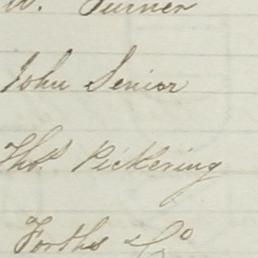 W. Turner
John Senior
Thos Pickering
Forths & Co